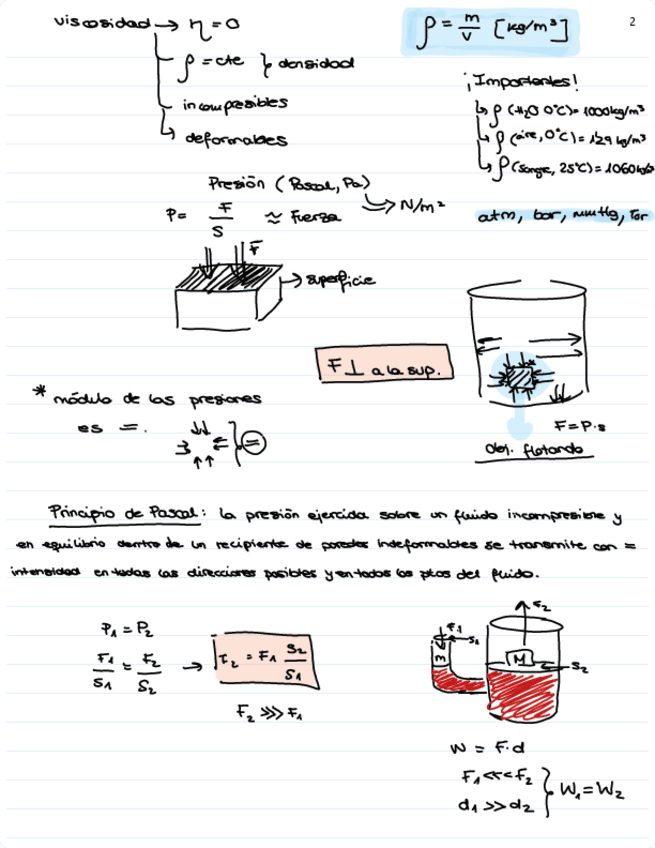 2
viscosidad → η = 0
ρ = m/v [kg/m³]
ρ = cte } densidad
incompresibles
deformables
¡Importantes!
ρ (H₂O 0°C) = 1000 kg/m³
ρ (aire, 0°C) = 1'29 kg/m³
ρ (sangre, 25°C) = 1060 kg/m³
Presión (Pascal, Pa)
→ N/m²
P = F/S ≈ Fuerza
atm, bar, mmHg, Tor
F
→ superficie
F ⊥ a la sup.
* módulo de las presiones
es =. } =
F = P·s
del. flotando
Principio de Pascal: La presión ejercida sobre un fluido incompresible y
en equilibrio dentro de un recipiente de paredes indeformables se transmite con =
intensidad en todas las direcciones posibles y en todos los ptos del fluido.
P₁ = P₂
F₁/S₁ = F₂/S₂ → F₂ = F₁ S₂/S₁
F₂ >>> F₁
F₂
F₁
S₁
m
M
S₂
W = F·d
F₁ <<< F₂
d₁ >> d₂ } W₁ = W₂